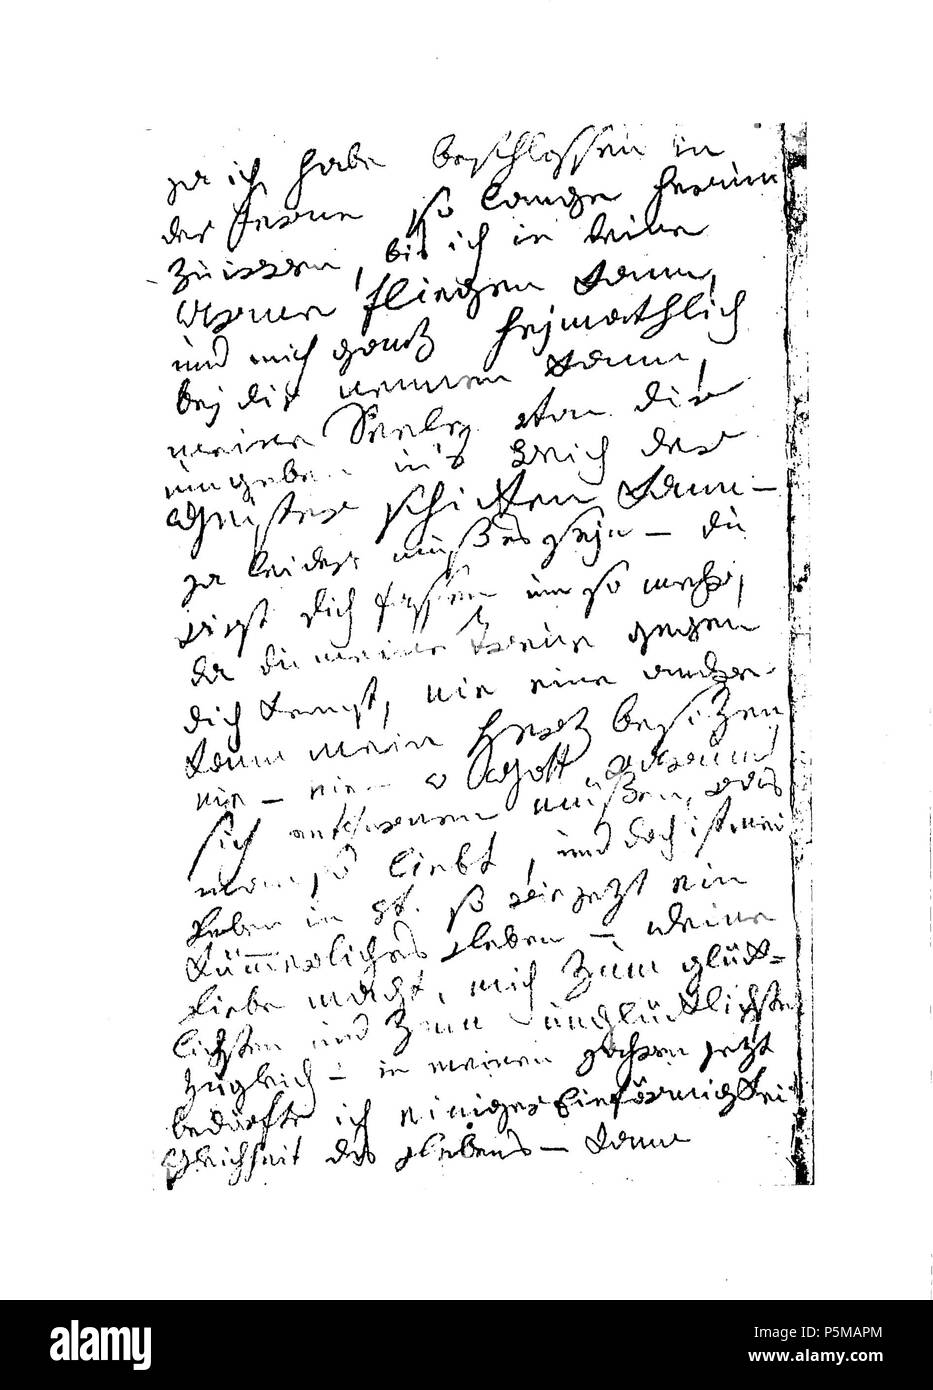 ja ich habe beschlossen in
der Ferne so lange herum
zu irren, bis ich in deine
Arme fliegen kann,
und mich ganz heymathlich
bey dir nennen kann,
meine Seele von dir
umgeben in's Reich der
Geister schicken kann —
ja leider muß es seyn — du
wirst dich fassen um so mehr,
da du meine Treue gegen
dich kennst, nie eine andre
kann mein Herz besizen
nie — nie — o Gott warum
sich entfernen müßen, was
man so liebt, und doch ist mein
Leben in so wie jezt ein
kümmerliches Leben — Deine
Liebe macht mich zum glück=
lichsten und zum unglücklichsten
zugleich — in meinen Jahren jezt
bedürfte ich einiger Einförmigkeit
Gleichheit des Lebens — kann
alamy
Image ID: P5MAPM
www.alamy.com